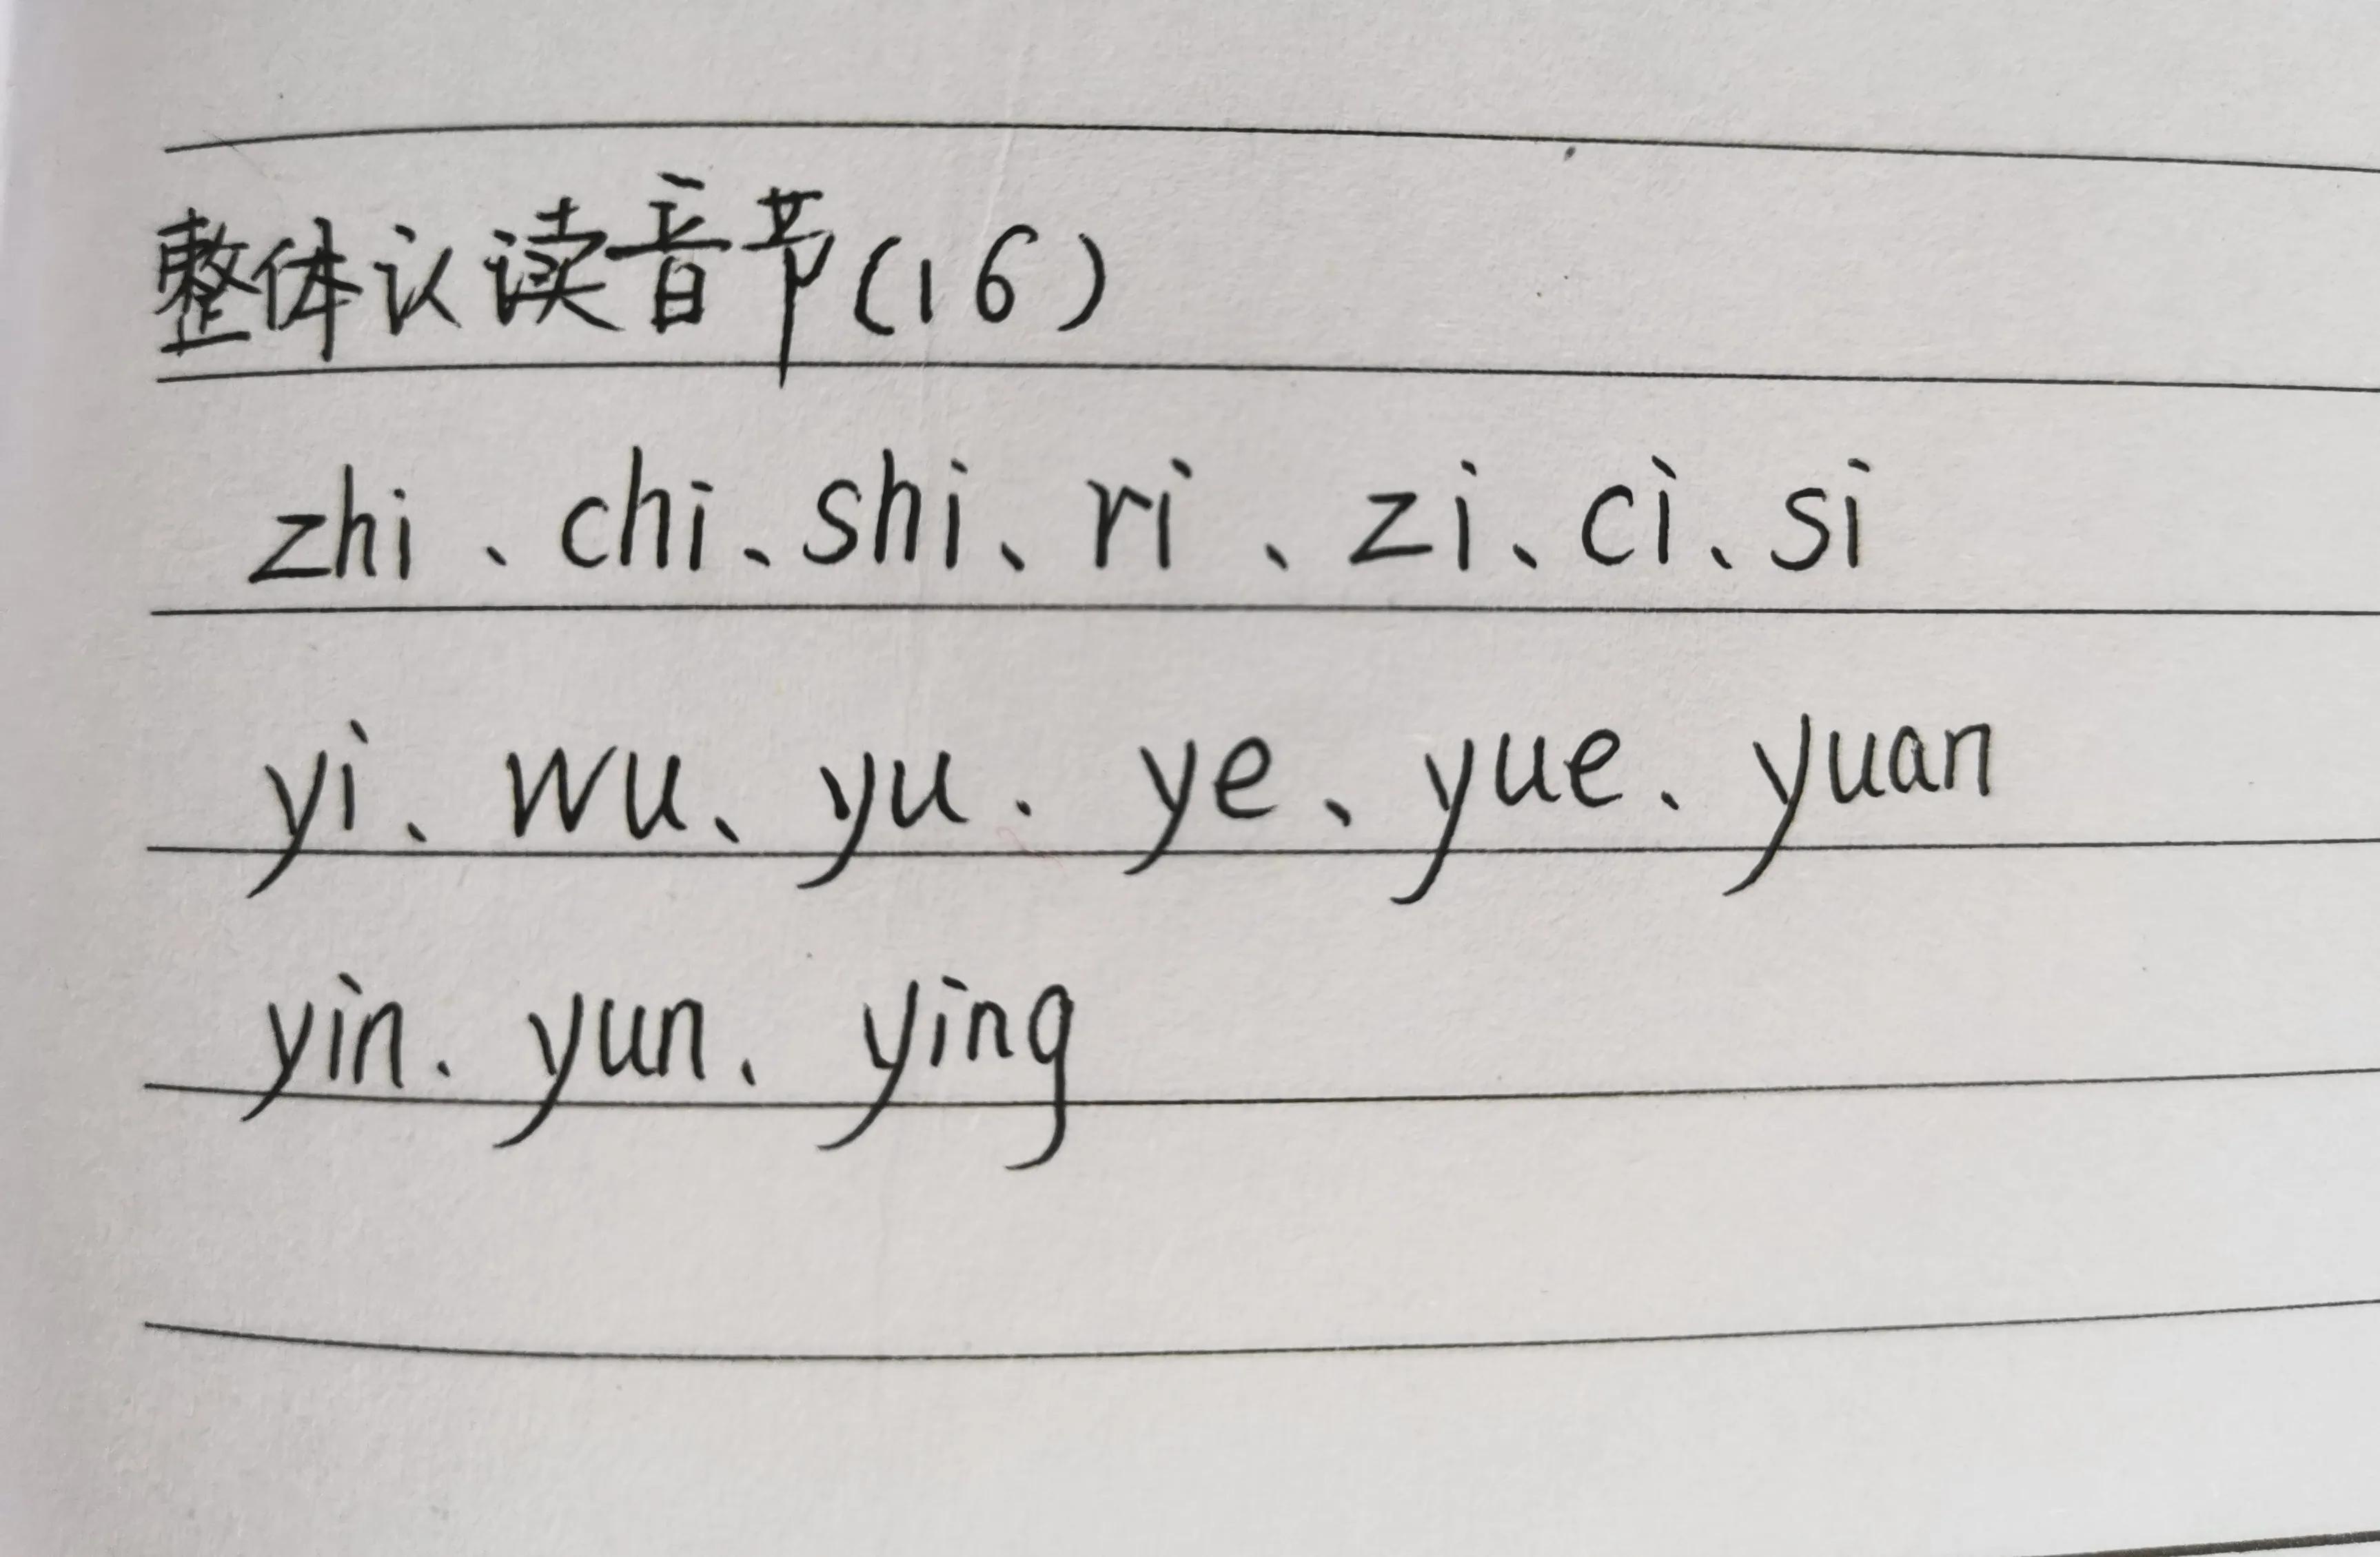 整体认读音节(16)
zhi、chi、shi、ri、zi、ci、si
yi、wu、yu、ye、yue、yuan
yin、yun、ying